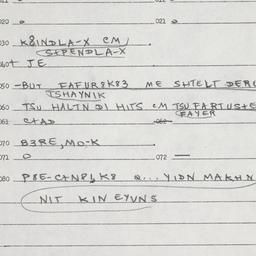 020 o 021 o
030 K8INDLA-X CM /
STPENDLA-X
JE
050 -BUT FAFUR8K83 ME SHTELT DERU
TSHAYNIK
060 TSU HALTN DI HITS CM TSU FARTUSTE
FAYER
061 C+AD 062
070 B3RE, MO-K
071 o 072 —
080 P8E-C+NP K8 Q... YIDN MAKHN
NIT KIN EYVNS